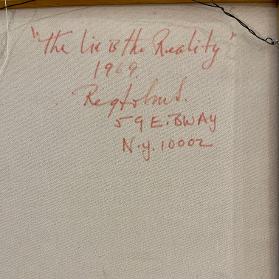 "The Lie is the Reality"
1969.
59 E. BWAY
N.Y. 10002